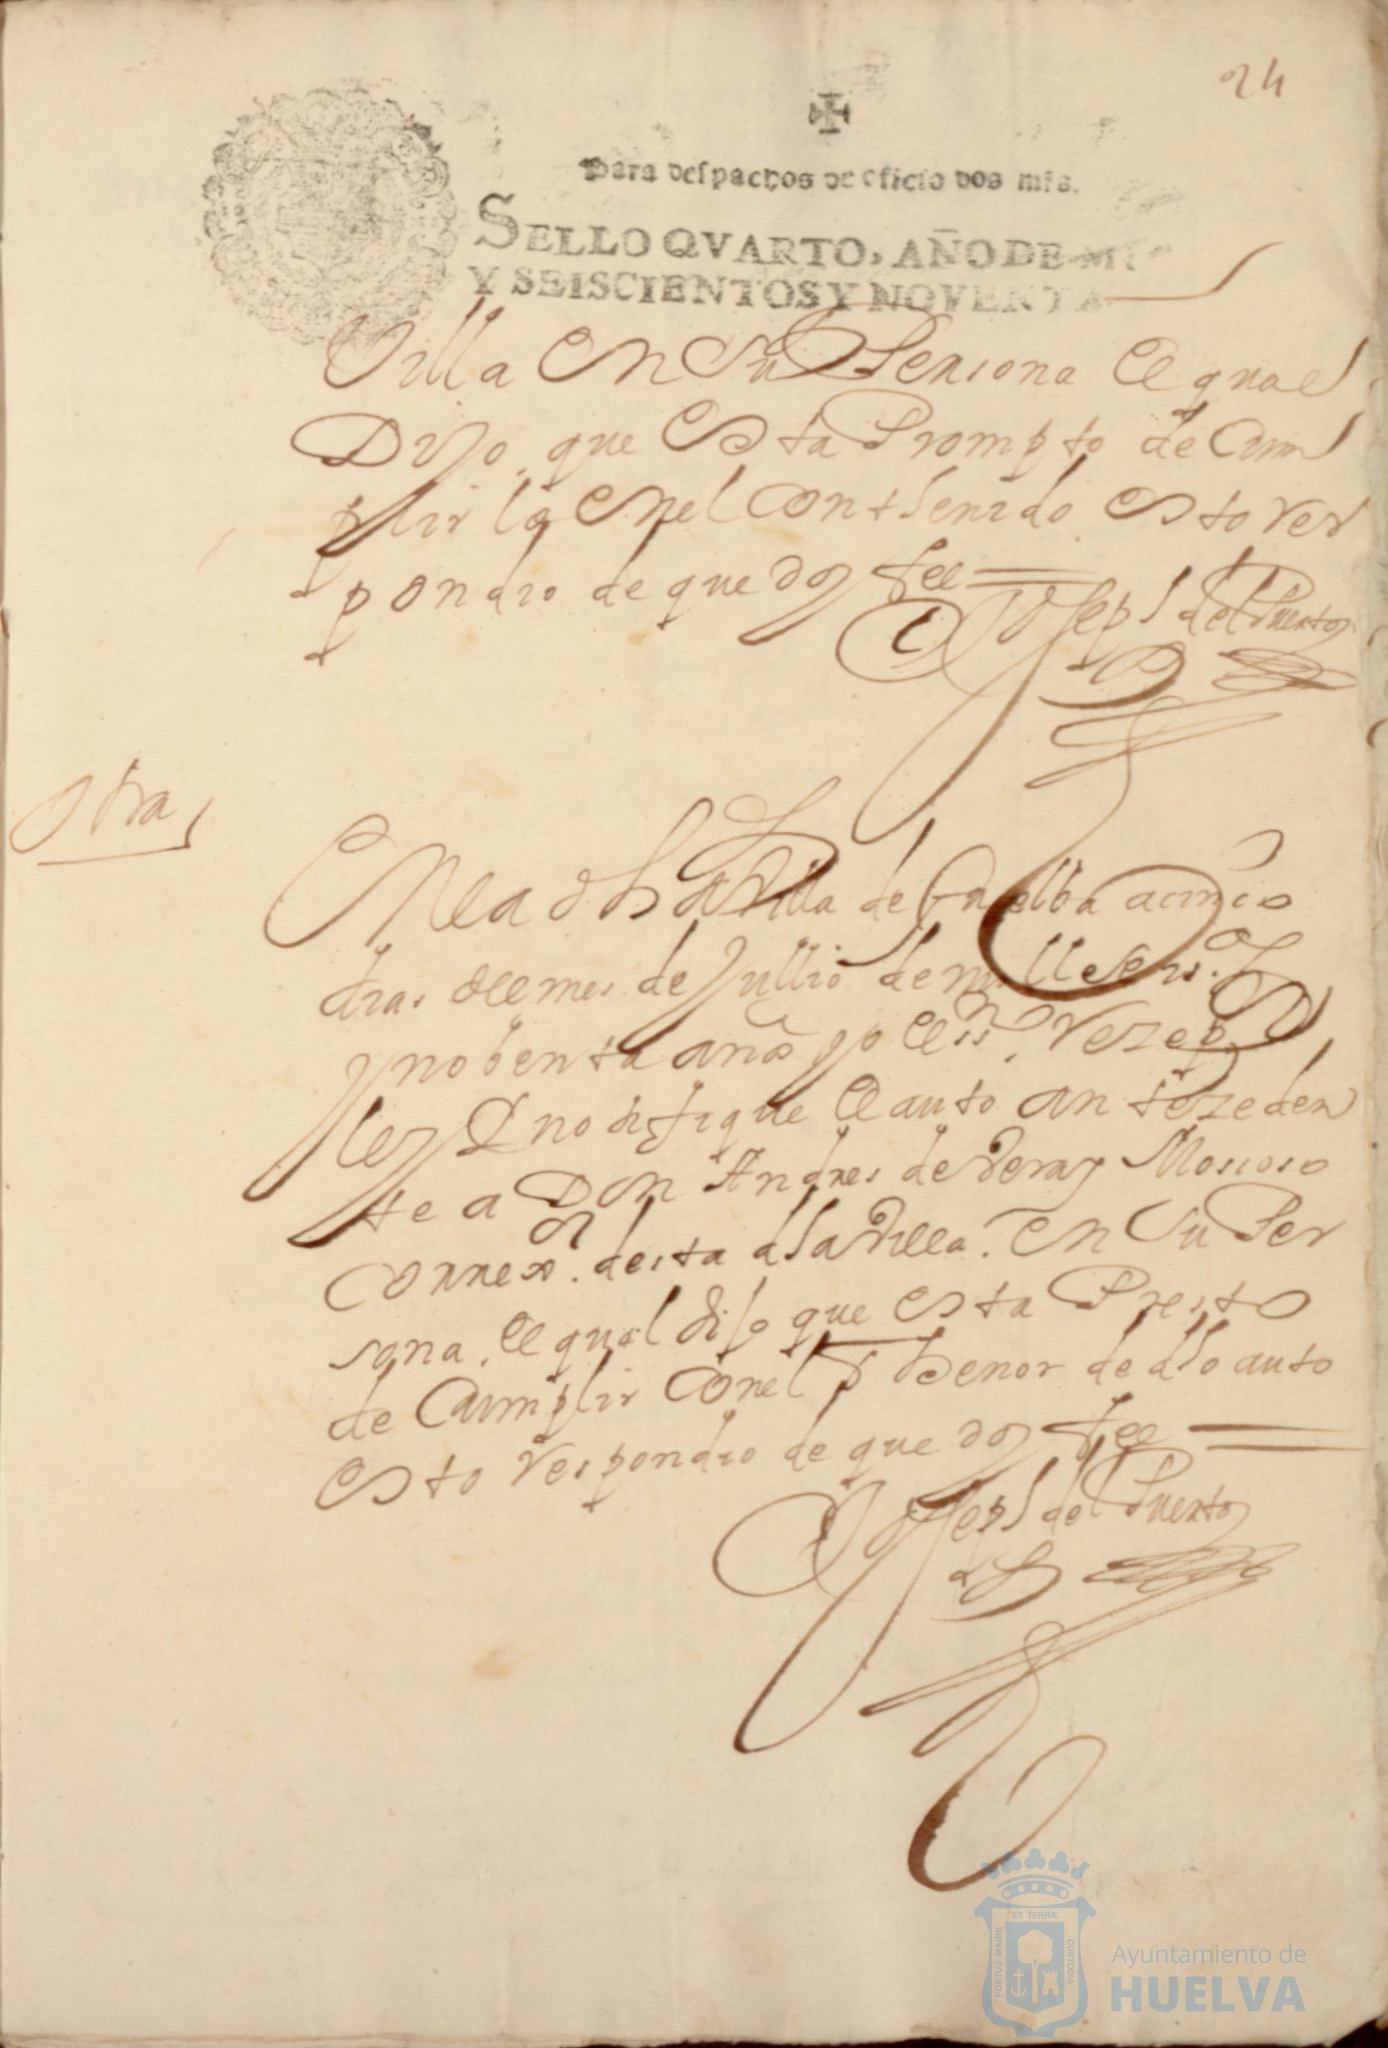 24
Para despachos de oficio dos mrs.
SELLO QVARTO, AÑO DE MIL
Y SEISCIENTOS Y NOVENTA
Villa en su Persona el qual
Dijo que esta Prompto de Cum
plir lo q enel Conthenido esto res
pondio de que doy fee
Joseph del Puerto
Otra
En la dha Villa de Guelba a cinco
dias del mes de Jullio de mill seis.
y nobenta años yo el ss.no
ley y notifique el auto antezeden
te a Don Andres de Vera y Moscoso
Correxor. desta dha Villa. en su Per
sona. el qual dijo que esta Presto
de Cumplir Con el thenor de dho auto
esto respondio de que doy fee
Joseph del Puerto
PORTUS MARIS
ET TERRÆ
CUSTODIA
Ayuntamiento de
HUELVA